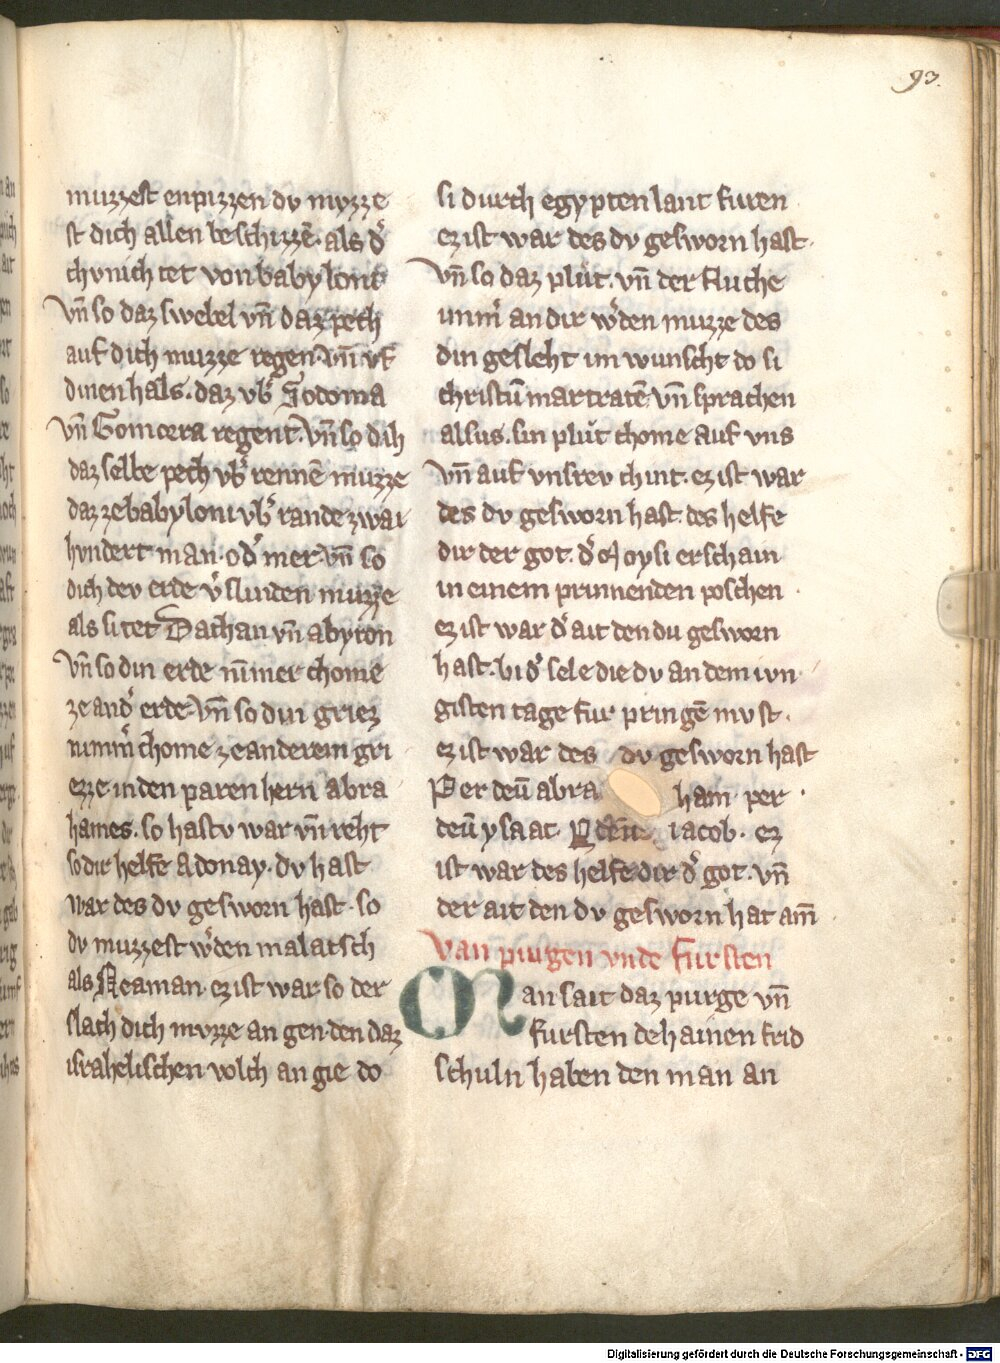 93.
muzzest enpizzen dv myzze
st dich allen beschizzē. als d̾
chvnich tet von babylonie
vn̄ so daz swebel vn̄ daz pech
auf dich muzze regen. vn̄ vf
dinen hals. daz vb̾ Sodoma
vn̄ Gomorra regent. vn̄ so dih
daz selbe pech vb̾ rennē muzze
daz ze babyloni vb̾ rande zwai
hvndert man. od̾ mer. vn̄ so
dich dev erde v̾slinden muzze
als si tet Dathan vn̄ abyron
vn̄ so din erde nim̄er chome
ze and̾ erde. vn̄ so din griez
nimm̾ chome ze anderem gri
ezze in den paren hern abra
hames. so hastv war vn̄ reht
so dir helfe Adonay. dv hast
war des dv gesworn hast. so
dv muzzest w̾den malatsch
als Neaman. ez ist war so der
slach dich mvzze an gen. den daz
israhelischen volch an gie do
si durch egypten lant furen
ez ist war des dv gesworn hast.
vn̄ so daz plůt. vn̄ der fluche
imm̾ an dir w̾den muzze des
din gesleht im wunscht do si
christū martratē. vn̄ sprachen
alsus. sin plůt chome auf vns
vn̄ auf vnsrev chint. ez ist war
des dv gesworn hast. des helfe
dir der got. d̾ Moysi erschain
in einem prinnenden poschen.
ez ist war d̾ ait den du gesworn
hast. bi d̾ sele die dv an dem ivn
gisten tage fur pringē mvst.
ez ist war des dv gesworn hast
Per deū abra ham per
deū ysaac. P deū iacob. ez
ist war des helfe dir d̾ got. vn̄
der ait den dv gesworn hat am̄
Van pürgen vnde fürsten
Man sait daz purge vn̄
fursten dehainen frid
schuln haben den man an
Digitalisierung gefördert durch die Deutsche Forschungsgemeinschaft - DFG